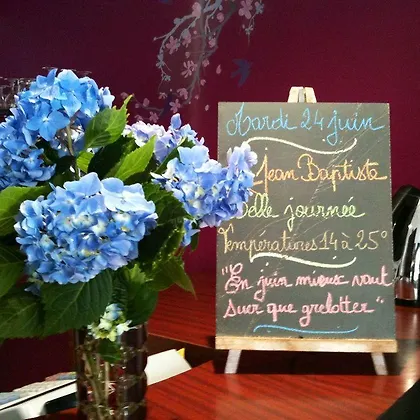 Mardi 24 juin
Jean Baptiste
Belle journée
Températures 14 à 25°
"En juin mieux vaut
suer que grelotter"